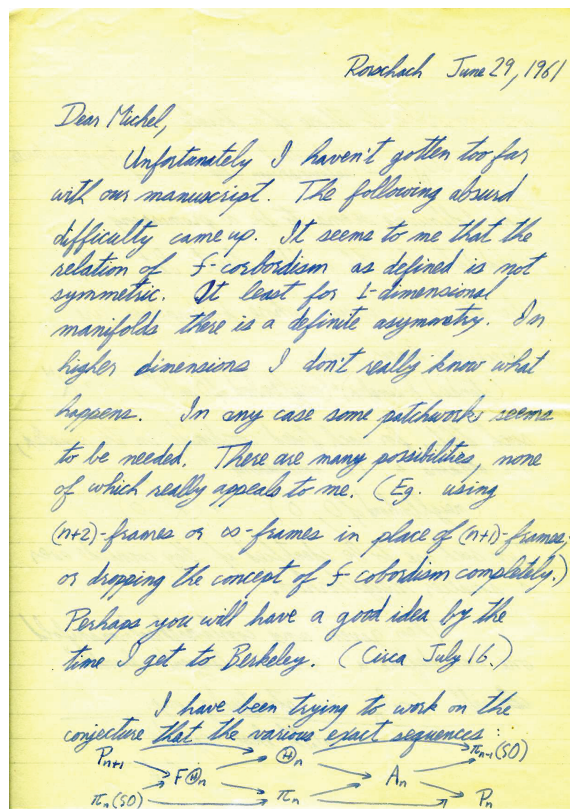 Rorschach June 29, 1961
Dear Michel,
Unfortunately I haven't gotten too far
with our manuscript. The following absurd
difficulty came up. It seems to me that the
relation of f-corbordism as defined is not
symmetric. At least for 1-dimensional
manifolds there is a definite asymmetry. In
higher dimensions I don't really know what
happens. In any case some patchwork seems
to be needed. There are many possibilities, none
of which really appeals to me. (Eg. using
(n+2)-frames or ∞-frames in place of (n+1)-frames;
or dropping the concept of f-cobordism completely.)
Perhaps you will have a good idea by the
time I get to Berkeley. (Circa July 16.)
I have been trying to work on the
conjecture that the various exact sequences:
P_{n+1} → Θ_n → π_{n-1}(SO)
FΘ_n A_n
π_n(SO) → π_n → P_n